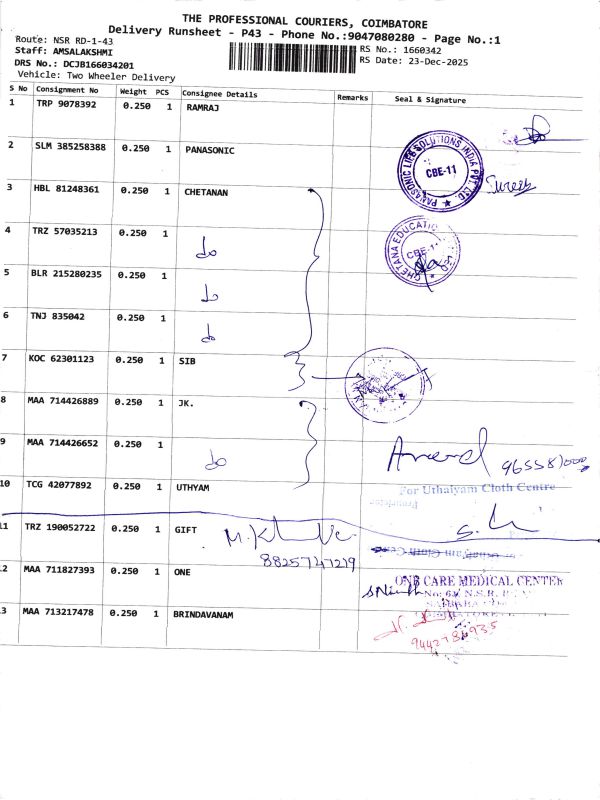 THE PROFESSIONAL COURIERS, COIMBATORE
Delivery Runsheet - P43 - Phone No.:9047080280 - Page No.:1
Route: NSR RD-1-43
Staff: AMSALAKSHMI
DRS No.: DCJB166034201
Vehicle: Two Wheeler Delivery
RS No.: 1660342
RS Date: 23-Dec-2025
S No Consignment No Weight PCS Consignee Details Remarks Seal & Signature
1 TRP 9078392 0.250 1 RAMRAJ
2 SLM 385258388 0.250 1 PANASONIC
PANASONIC LIFE SOLUTIONS INDIA PVT. LTD.
CBE-11
Suresh
3 HBL 81248361 0.250 1 CHETANAN
4 TRZ 57035213 0.250 1 do
CHETANA EDUCATIO
CBE-11
5 BLR 215280235 0.250 1 do
6 TNJ 835042 0.250 1 do
7 KOC 62301123 0.250 1 SIB
8 MAA 714426889 0.250 1 JK.
9 MAA 714426652 0.250 1 do
Anand
10 TCG 42077892 0.250 1 UTHYAM
For Uthaiyam Cloth Centre
Proprietor
11 TRZ 190052722 0.250 1 GIFT
8825747219
For Uthaiyam Cloth Centre
12 MAA 711827393 0.250 1 ONE
ONE CARE MEDICAL CENTER
13 MAA 713217478 0.250 1 BRINDAVANAM